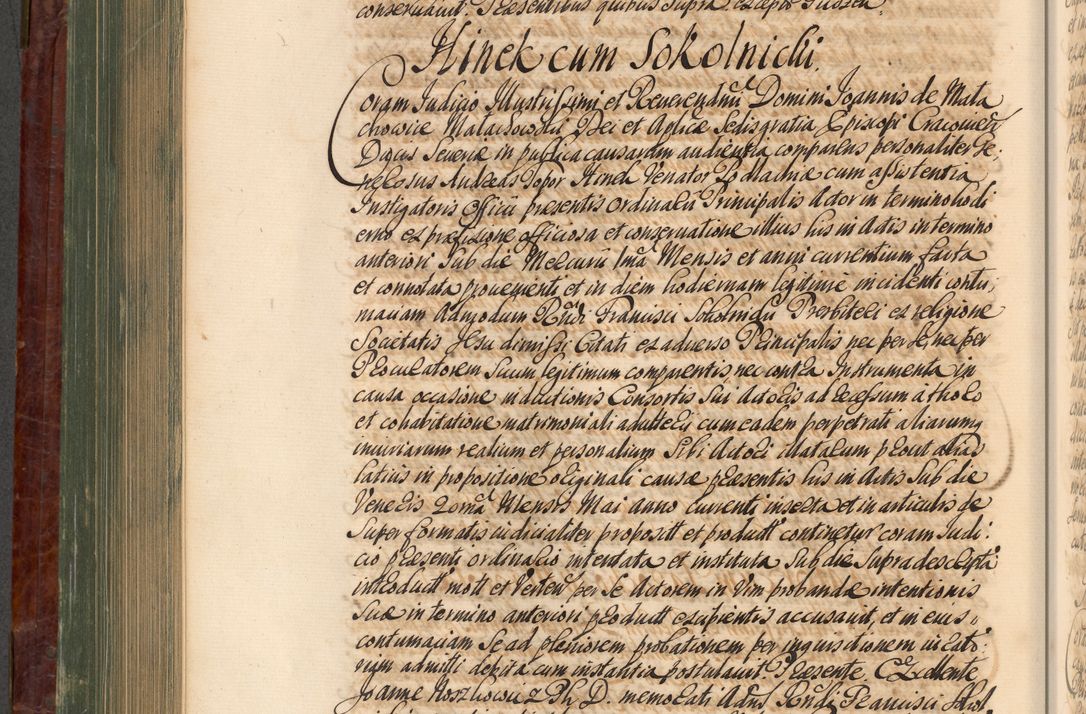 conservavit. Præsentibus quibus supra excepto Jussen.
Hinek cum Sokolnicki.
Coram Judicio Illustrissimi et Reverendmi Domini Joannis de Mala
chowice Małachowski Dei et Aplicæ Sedis gratia Episcopi Cracovien
Ducis Severiæ in publica causarum audientia comparens personaliter Ge,
nerosus Andreas Topor Hinek Venator Podlachiæ cum assistentia
Instigatoris Officii præsentis ordinarii Principalis Actor in termino hodi
erno ex præfixione officiosa et conservatione illius his in Actis in termino
anteriori Sub die Mercurii Ima Mensis et anni currentium facta
et connotata provenienti et in diem hodiernam legitime incidenti contu,
maciam Admodum Rndi Francisci Sokolnicki Presbiteri ex religione
Societatis Jesu dimissi Citati ex adverso Principalis nec per se, nec per
Procuratorem Suum legitimum comparentis nec contra Instrumenta in
causa occasione inductionis Consortis Sui Actoris ad recessum a thoro
et cohabitatione matrimoniali adulterii cum eadem perpetrati aliarumq
iniuriarum realium et personalium Sibi Actori illatarum prout alias
latius in propositione originali causæ præsentis his in Actis Sub die
Veneris 20ma Mensis Mai anno currenti inserta et in articulis de
super formatis iudicialiter proposit et product continetur coram Judi:
cio præsenti ordinario intentata et instituta Sub die Supradescripta
introduct mott et Verten per se Actorem in Vim probandæ intentionis
Suæ in termino anteriori product excipientis accusavit, et in eius
contumaciam Se ad pleniorem probationem per inquisitionem iurato:
riam admitti debita cum instantia postulavit. Præsente Exellente
Joanne U. Ph. D. memorati Admd Rndi Francisci Skol